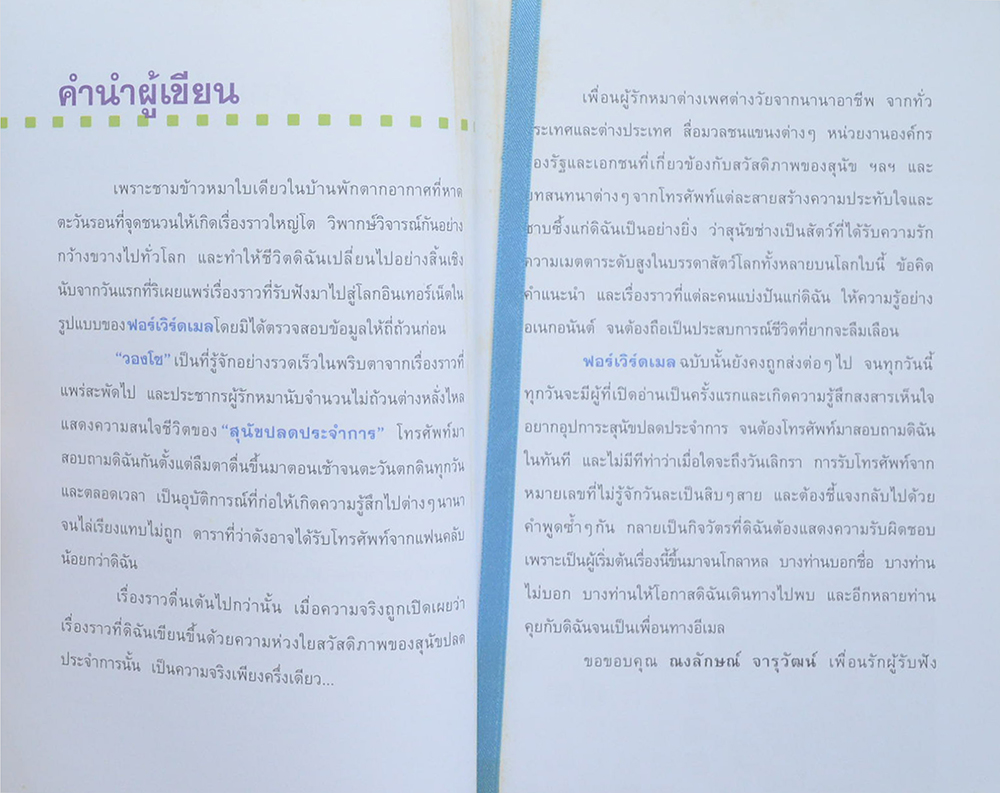 คำนำผู้เขียน
เพราะชามข้าวหมาใบเดียวในบ้านพักตากอากาศที่หาด
ตะวันรอนที่จุดชนวนให้เกิดเรื่องราวใหญ่โต วิพากษ์วิจารณ์กันอย่าง
กว้างขวางไปทั่วโลก และทำให้ชีวิตดิฉันเปลี่ยนไปอย่างสิ้นเชิง
นับจากวันแรกที่ริเผยแพร่เรื่องราวที่รับฟังมาไปสู่โลกอินเทอร์เน็ตใน
รูปแบบของฟอร์เวิร์ดเมลโดยมิได้ตรวจสอบข้อมูลให้ถี่ถ้วนก่อน
“วองโซ” เป็นที่รู้จักอย่างรวดเร็วในพริบตาจากเรื่องราวที่
แพร่สะพัดไป และประชากรผู้รักหมานับจำนวนไม่ถ้วนต่างหลั่งไหล
แสดงความสนใจชีวิตของ “สุนัขปลดประจำการ” โทรศัพท์มา
สอบถามดิฉันกันตั้งแต่ลืมตาตื่นขึ้นมาตอนเช้าจนตะวันตกดินทุกวัน
และตลอดเวลา เป็นอุบัติการณ์ที่ก่อให้เกิดความรู้สึกไปต่างๆนานา
จนไล่เรียงแทบไม่ถูก ดาราที่ว่าดังอาจได้รับโทรศัพท์จากแฟนคลับ
น้อยกว่าดิฉัน
เรื่องราวตื่นเต้นไปกว่านั้น เมื่อความจริงถูกเปิดเผยว่า
เรื่องราวที่ดิฉันเขียนขึ้นด้วยความห่วงใยสวัสดิภาพของสุนัขปลด
ประจำการนั้น เป็นความจริงเพียงครึ่งเดียว...
เพื่อนผู้รักหมาต่างเพศต่างวัยจากนานาอาชีพ จากทั่ว
ประเทศและต่างประเทศ สื่อมวลชนแขนงต่างๆ หน่วยงานองค์กร
ของรัฐและเอกชนที่เกี่ยวข้องกับสวัสดิภาพของสุนัข ฯลฯ และ
บทสนทนาต่างๆจากโทรศัพท์แต่ละสายสร้างความประทับใจและ
ซาบซึ้งแก่ดิฉันเป็นอย่างยิ่ง ว่าสุนัขช่างเป็นสัตว์ที่ได้รับความรัก
ความเมตตาระดับสูงในบรรดาสัตว์โลกทั้งหลายบนโลกใบนี้ ข้อคิด
คำแนะนำ และเรื่องราวที่แต่ละคนแบ่งปันแก่ดิฉัน ให้ความรู้อย่าง
อเนกอนันต์ จนต้องถือเป็นประสบการณ์ชีวิตที่ยากจะลืมเลือน
ฟอร์เวิร์ดเมล ฉบับนั้นยังคงถูกส่งต่อๆไป จนทุกวันนี้
ทุกวันจะมีผู้ที่เปิดอ่านเป็นครั้งแรกและเกิดความรู้สึกสงสารเห็นใจ
อยากอุปการะสุนัขปลดประจำการ จนต้องโทรศัพท์มาสอบถามดิฉัน
ในทันที และไม่มีทีท่าว่าเมื่อใดจะถึงวันเลิกรา การรับโทรศัพท์จาก
หมายเลขที่ไม่รู้จักวันละเป็นสิบๆสาย และต้องชี้แจงกลับไปด้วย
คำพูดซ้ำๆกัน กลายเป็นกิจวัตรที่ดิฉันต้องแสดงความรับผิดชอบ
เพราะเป็นผู้เริ่มต้นเรื่องนี้ขึ้นมาจนโกลาหล บางท่านบอกชื่อ บางท่าน
ไม่บอก บางท่านให้โอกาสดิฉันเดินทางไปพบ และอีกหลายท่าน
คุยกับดิฉันจนเป็นเพื่อนทางอีเมล
ขอขอบคุณ ณงลักษณ์ จารุวัฒน์ เพื่อนรักผู้รับฟัง